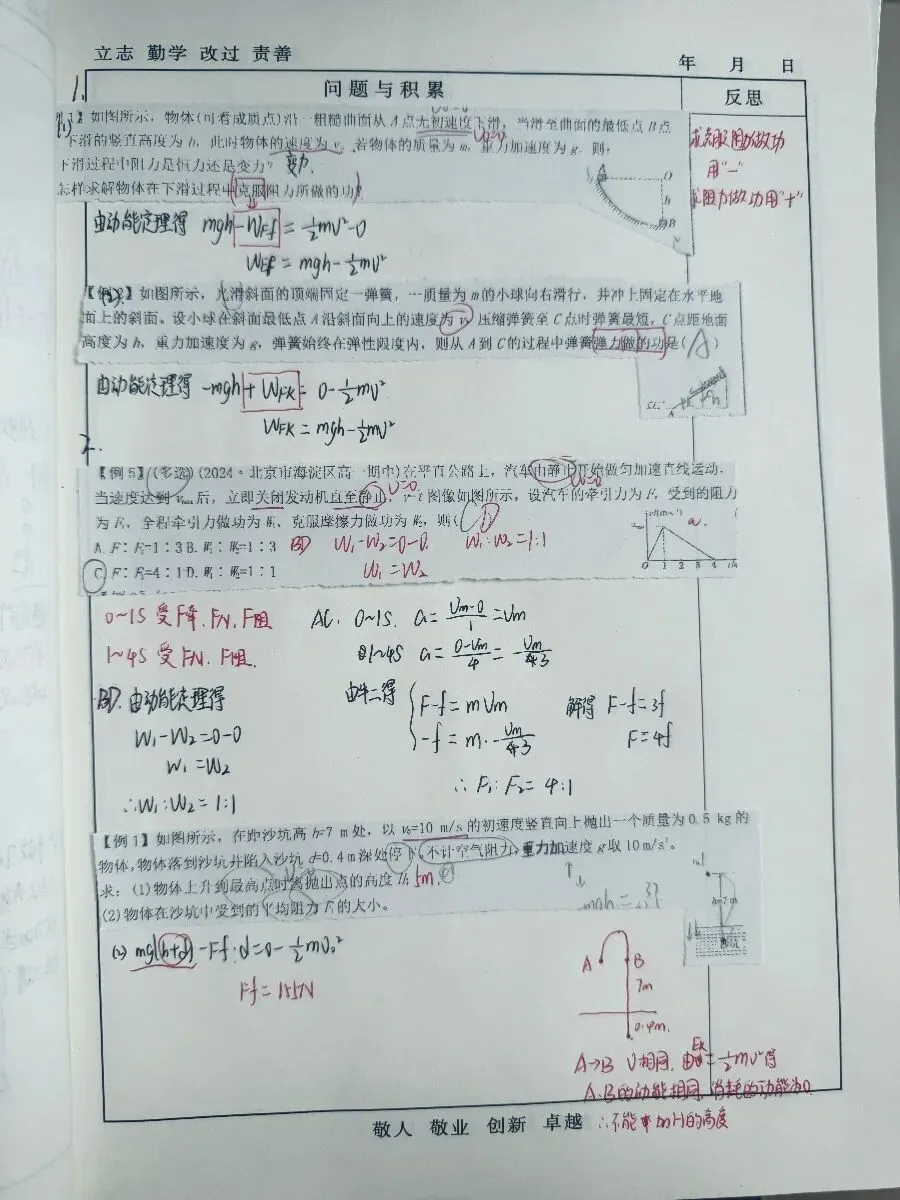 立志 勤学 改过 责善
年 月 日
问题与积累
反思
1.
(1) 如图所示，物体(可看成质点)沿一粗糙曲面从A点无初速度下滑，当滑至曲面的最低点B点
下滑的竖直高度为h，此时物体的速度为v，若物体的质量为m，重力加速度为g，则：
下滑过程中阻力是恒力还是变力？ 变力
怎样求解物体在下滑过程中克服阻力所做的功
A O h B
求克服阻力做功
用"-"
求阻力做功用"+"
由动能定理得 mgh-WFf=½mv²-0
WFf=mgh-½mv²
【例2】如图所示，光滑斜面的顶端固定一弹簧，一质量为m的小球向右滑行，并冲上固定在水平地
面上的斜面。设小球在斜面最低点A沿斜面向上的速度为v，压缩弹簧至C点时弹簧最短，C点距地面
高度为h，重力加速度为g，弹簧始终在弹性限度内，则从A到C的过程中弹簧弹力做的功是( A )
由动能定理得 -mgh+WFK=0-½mv²
WFK=mgh-½mv²
2.
【例5】(多选)(2024·北京市海淀区高一期中)在平直公路上，汽车由静止开始做匀加速直线运动，
当速度达到vmax后，立即关闭发动机直至静止，v-t图像如图所示，设汽车的牵引力为F，受到的阻力
为F₁，全程牵引力做功为W₁，克服摩擦力做功为W₂，则( CD
A. F：F₁=1：3 B. W₁：W₂=1：3 BD W₁-W₂=0-0. W₁:W₂=1:1
C. F：F₁=4：1 D. W₁：W₂=1：1 W₁=W₂
0~1S 受F牵.FN.F阻 AC. 0~1S. a=(Vm-0)/1=Vm
1~4S 受FN.F阻. 1~4S a=(0-Vm)/4=-Vm/3
BD. 由动能定理得 由牛二得 F-f=mVm 解得 F-f=3f
W₁-W₂=0-0 -f=m·-Vm/3 F=4f
W₁=W₂
∴F₁:F₂=4:1
∴W₁:W₂=1:1
【例1】如图所示，在距沙坑高h=7 m处，以v₀=10 m/s的初速度竖直向上抛出一个质量为0.5 kg的
物体,物体落到沙坑并陷入沙坑d=0.4 m深处停下,不计空气阻力,重力加速度g取10 m/s²。
求：(1)物体上升到最高点时离抛出点的高度H; 5m.
(2)物体在沙坑中受到的平均阻力F的大小。
h=7 m
(2) mg(h+d)-Ff·d=0-½mv₀²
Ff=155N
A B
7m
0.4m.
A→B V相同. 由Ek=½mv²得
A.B的动能相同.消耗的动能为0
∴不能加H的高度
敬人 敬业 创新 卓越